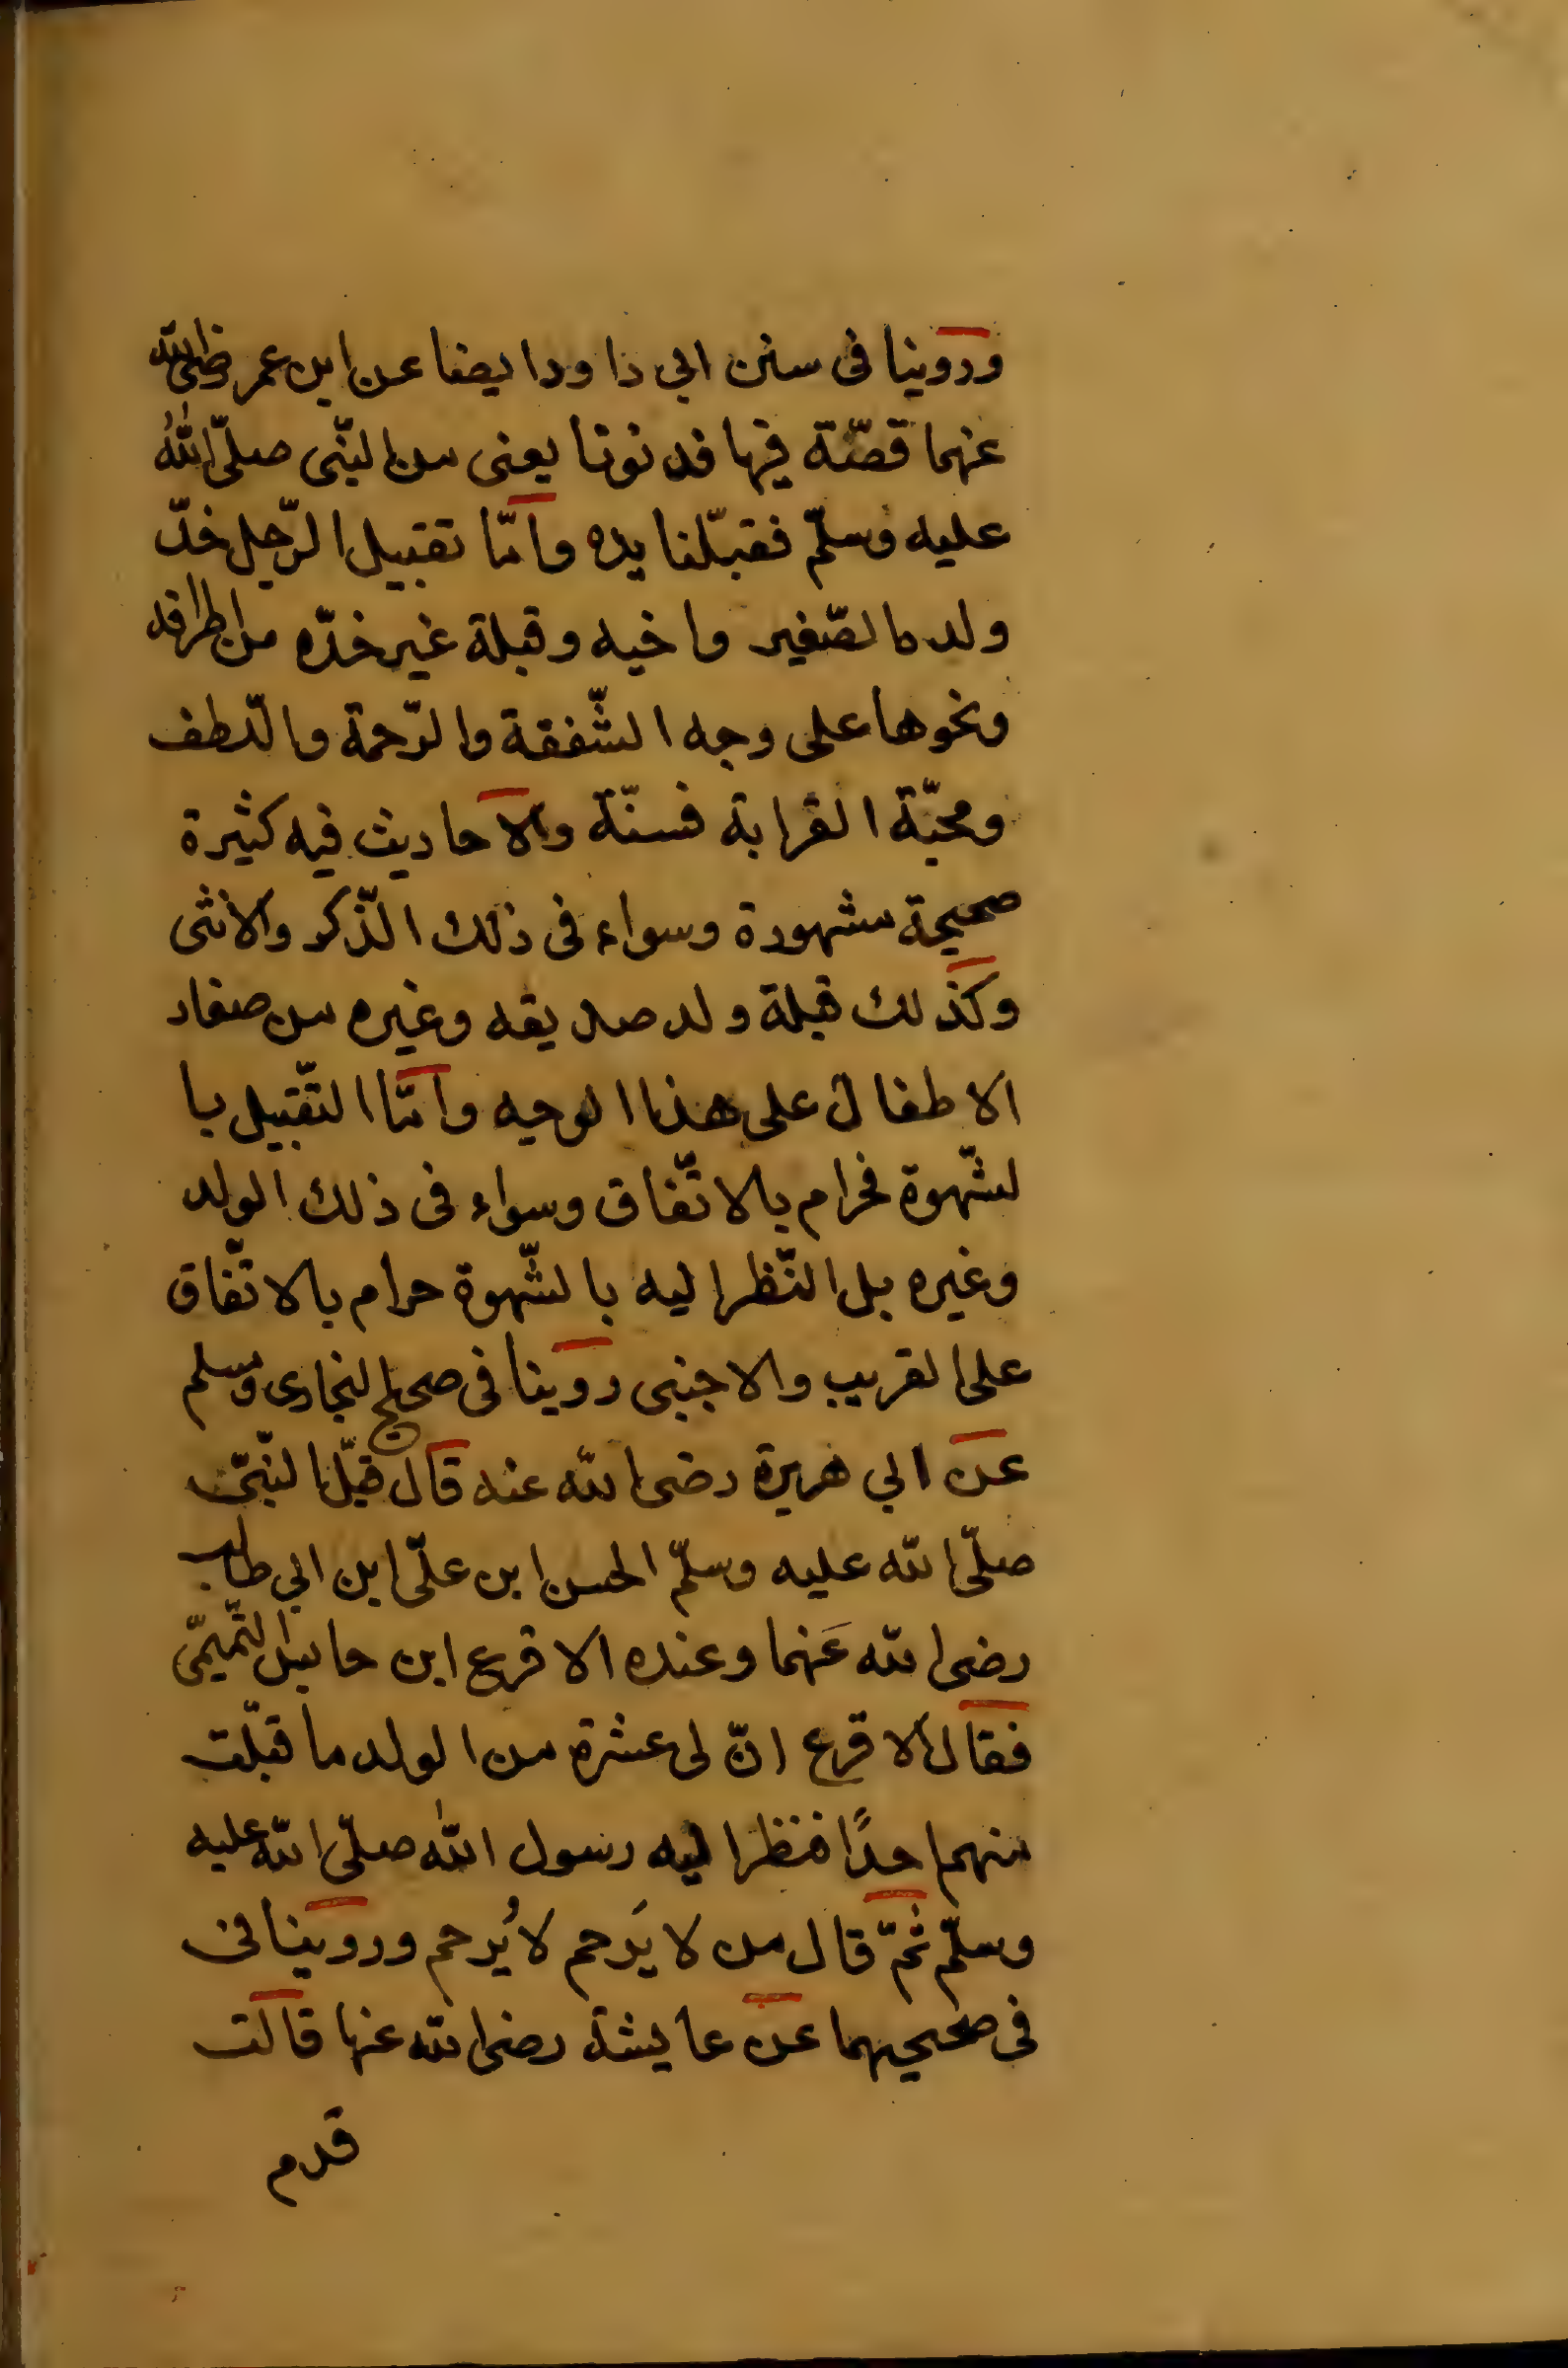 وروينا فى سنن ابي داود ايضا عن ابن عمر رضى الله
عنهما قصّة فيها فدنونا يعنى من النّبى صلّى اللّٰه
عليه وسلّم فقبّلنا يده وامّا تقبيل الرّجل خدّ
ولده الصّغير واخيه وقبلة غير خدّه من اطرافه
ونحوها على وجه الشّفقة والرّحمة واللّطف
ومحبّة القرابة فسنّة والاحاديث فيه كثيرة
صحيحة مشهورة وسواء فى ذلك الذّكر والانثى
وكذلك قبلة ولد صديقه وغيره من صغار
الاطفال على هذا الوجه وامّا التّقبيل با
لشّهوة فحرام بالاتّفاق وسواء فى ذلك الولد
وغيره بل النّظر اليه بالشّهوة حرام بالاتّفاق
على القريب والاجنبى روينا فى صحيح البخارى ومسلم
عن ابي هريرة رضى الله عنه قال قبّل النّبىّ
صلّى الله عليه وسلّم الحسن ابن علىّ ابن ابي طالب
رضى الله عَنهما وعنده الاقرع ابن حابس التّميمّى
فقال الاقرع انّ لى عشرة من الولد ما قبّلت
منهم احدًا فنظر اليه رسول اللّٰه صلّى الله عليه
وسلّم ثمّ قال من لا يَرحم لا يُرحم وروينا فى
فى صحيحيهما عن عايشة رضى الله عنها قالت
قدم